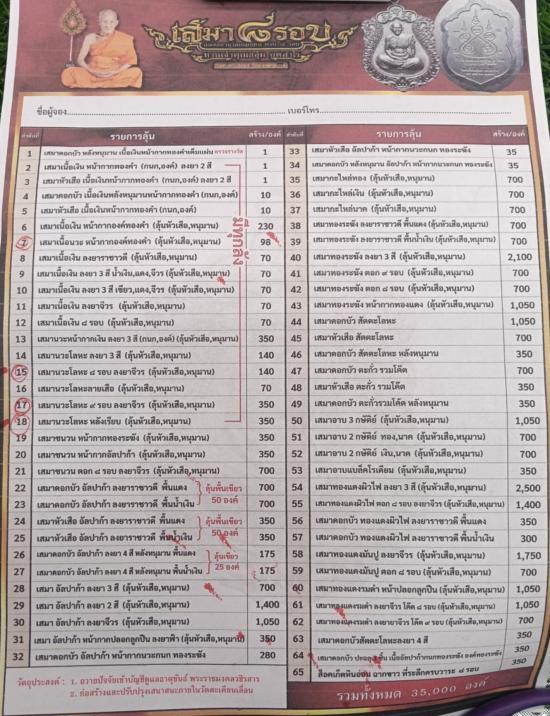 เสมา ๘ รอบ
ชื่อผู้จอง........................ เบอร์โทร........................
ลำดับที่ รายการลุ้น สร้าง/องค์
1 เสมาดอกบัว หลังหนุมาน เนื้อเงินหน้ากากทองคำเต็มแผ่น ตรวจรางวัล 1
2 เสมาเนื้อเงิน หน้ากากทองคำ (กนก,องค์) ลงยา 2 สี 1
3 เสมาหัวเสือ เนื้อเงินหน้ากากทองคำ (กนก,องค์) ลงยา 2 สี 1
4 เสมาดอกบัว เนื้อเงินหลังหนุมานหน้ากากทองคำ (กนก,องค์) 10
5 เสมาหัวเสือ เนื้อเงินหน้ากากทองคำ (กนก,องค์) 10
6 เสมาเนื้อเงิน หน้ากากองค์ทองคำ (ลุ้นหัวเสือ,หนุมาน) 230
7 เสมาเนื้อนวะ หน้ากากองค์ทองคำ (ลุ้นหัวเสือ,หนุมาน) 98
8 เสมาเนื้อเงิน ลงยาราชาวดี (ลุ้นหัวเสือ,หนุมาน) 70
9 เสมาเนื้อเงิน ลงยา 3 สี น้ำเงิน,แดง,จีวร (ลุ้นหัวเสือ,หนุมาน) 70
10 เสมาเนื้อเงิน ลงยา 3 สี เขียว,แดง,จีวร (ลุ้นหัวเสือ,หนุมาน) 70
11 เสมาเนื้อเงิน ลงยาจีวร (ลุ้นหัวเสือ,หนุมาน) 70
12 เสมาเนื้อเงิน ๘ รอบ (ลุ้นหัวเสือ,หนุมาน) 70
13 เสมานวะหน้ากากเงิน ลงยา 3 สี (กนก,องค์) (ลุ้นหัวเสือ,หนุมาน) 350
14 เสมานวะโลหะ ลงยา 3 สี (ลุ้นหัวเสือ,หนุมาน) 140
15 เสมานวะโลหะ ๘ รอบ ลงยาจีวร (ลุ้นหัวเสือ,หนุมาน) 140
16 เสมานวะโลหะลายเสือ (ลุ้นหัวเสือ,หนุมาน) 70
17 เสมานวะโลหะ ๙ รอบ ลงยาจีวร (ลุ้นหัวเสือ,หนุมาน) 350
18 เสมานวะโลหะ หลังเรียบ (ลุ้นหัวเสือ,หนุมาน) 350
มีทุกลัง
19 เสมาชนวน หน้ากากทองระฆัง (ลุ้นหัวเสือ,หนุมาน) 350
20 เสมาชนวน หน้ากากอัลปาก้า (ลุ้นหัวเสือ,หนุมาน) 350
21 เสมาชนวน ตอก ๙ รอบ ลงยาจีวร (ลุ้นหัวเสือ,หนุมาน) 700
22 เสมาดอกบัว อัลปาก้า ลงยาราชาวดี พื้นแดง 700
23 เสมาดอกบัว อัลปาก้า ลงยาราชาวดี พื้นน้ำเงิน 700
ลุ้นพื้นเขียว 50 องค์
24 เสมาหัวเสือ อัลปาก้า ลงยาราชาวดี พื้นแดง 350
25 เสมาหัวเสือ อัลปาก้า ลงยาราชาวดี พื้นน้ำเงิน 350
ลุ้นพื้นเขียว 50 องค์
26 เสมาดอกบัว อัลปาก้า ลงยา 4 สี หลังหนุมาน พื้นแดง 175
27 เสมาดอกบัว อัลปาก้า ลงยา 4 สี หลังหนุมาน พื้นน้ำเงิน 175
ลุ้นเขียว 25 องค์
28 เสมา อัลปาก้า ลงยา 3 สี (ลุ้นหัวเสือ,หนุมาน) 700
29 เสมา อัลปาก้า ลงยา 2 สี (ลุ้นหัวเสือ,หนุมาน) 1,400
30 เสมา อัลปาก้า ลงยาจีวร (ลุ้นหัวเสือ,หนุมาน) 1,050
31 เสมา อัลปาก้า หน้ากากปลอกลูกปืน ลงยาฟ้า (ลุ้นหัวเสือ,หนุมาน) 350
32 เสมาดอกบัว อัลปาก้า หน้ากากนวะกนก ทองระฆัง 280
ลำดับที่ รายการลุ้น สร้าง/องค์
33 เสมาหัวเสือ อัลปาก้า หน้ากากนวะกนก ทองระฆัง 35
34 เสมาดอกบัว หลังหนุมาน อัลปาก้า หน้ากากนวะกนก ทองระฆัง 35
35 เสมากะไหล่ทอง (ลุ้นหัวเสือ,หนุมาน) 700
36 เสมากะไหล่เงิน (ลุ้นหัวเสือ,หนุมาน) 700
37 เสมากะไหล่นาค (ลุ้นหัวเสือ,หนุมาน) 700
38 เสมาทองระฆัง ลงยาราชาวดี พื้นแดง (ลุ้นหัวเสือ,หนุมาน) 700
39 เสมาทองระฆัง ลงยาราชาวดี พื้นน้ำเงิน (ลุ้นหัวเสือ,หนุมาน) 700
40 เสมาทองระฆัง ลงยา 3 สี (ลุ้นหัวเสือ,หนุมาน) 2,100
41 เสมาทองระฆัง ตอก ๙ รอบ (ลุ้นหัวเสือ,หนุมาน) 700
42 เสมาทองระฆัง ตอก ๘ รอบ (ลุ้นหัวเสือ,หนุมาน) 700
43 เสมาทองระฆัง หน้ากากทองแดง (ลุ้นหัวเสือ,หนุมาน) 1,050
44 เสมาดอกบัว สัตตะโลหะ 1,050
45 เสมาหัวเสือ สัตตะโลหะ 700
46 เสมาดอกบัว สัตตะโลหะ หลังหนุมาน 350
47 เสมาดอกบัว ตะกั่ว รวมโค๊ต 700
48 เสมาหัวเสือ ตะกั่ว รวมโค๊ต 350
49 เสมาดอกบัว ตะกั่วรวมโค๊ต หลังหนุมาน 350
50 เสมาอาบ 3 กษัตริย์ (ลุ้นหัวเสือ,หนุมาน) 1,050
51 เสมาอาบ 2 กษัตริย์ ทอง,นาค (ลุ้นหัวเสือ,หนุมาน) 700
52 เสมาอาบ 2 กษัตริย์ เงิน,นาค (ลุ้นหัวเสือ,หนุมาน) 700
53 เสมาอาบแบล็คโรเดียม (ลุ้นหัวเสือ,หนุมาน) 350
54 เสมาทองแดงผิวไฟ ลงยา 3 สี (ลุ้นหัวเสือ,หนุมาน) 2,500
55 เสมาทองแดงผิวไฟ ตอก ๘ รอบ ลงยาจีวร (ลุ้นหัวเสือ,หนุมาน) 1,400
56 เสมาดอกบัว ทองแดงผิวไฟ ลงยาราชาวดี พื้นแดง 350
57 เสมาดอกบัว ทองแดงผิวไฟ ลงยาราชาวดี พื้นน้ำเงิน 300
58 เสมาทองแดงมันปู ลงยาจีวร (ลุ้นหัวเสือ,หนุมาน) 1,750
59 เสมาทองแดงมันปู ตอก ๘ รอบ (ลุ้นหัวเสือ,หนุมาน) 700
60 เสมาทองแดงรมดำ หน้าปลอกลูกปืน (ลุ้นหัวเสือ,หนุมาน) 1,050
61 เสมาทองแดงรมดำ ลงยาจีวร โค๊ต ๘ รอบ (ลุ้นหัวเสือ,หนุมาน) 1,050
62 เสมาทองแดงรมดำ ลงยาจีวร โค๊ต ๙ รอบ (ลุ้นหัวเสือ,หนุมาน) 700
63 เสมาดอกบัวสัตตะโลหะลงยา 4 สี 350
64 เสมาดอกบัว ปลอกลูกปืน เนื้ออัลปาก้ากนกทองระฆังองค์ทองระฆัง 350
65 ล็อคเก็ตหินอ่อน ฉากขาว ที่ระลึกครบวาระ ๘ รอบ 350
รวมทั้งหมด 35,000 องค์
วัตถุประสงค์ : ๑. ถวายปัจจัยเข้าบัญชีดูแลอาสุขันธ์ พระราชมงคลวัชราส
๒. ก่อสร้างและปรับปรุงเสนาสนะภายในวัดตะเคียนเลื่อน